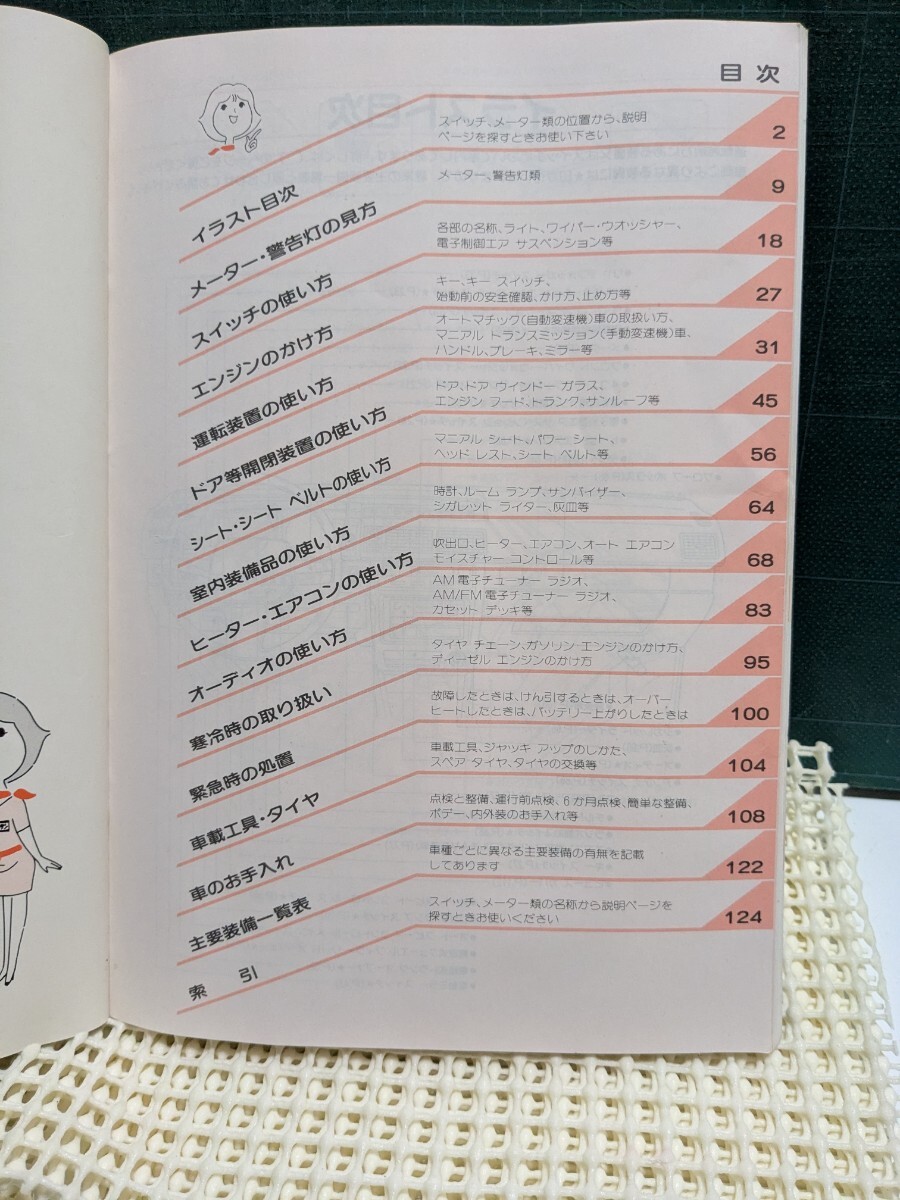 目次
イラスト目次
スイッチ、メーター類の位置から、説明
ページを探すときお使い下さい
2
メーター・警告灯の見方
メーター、警告灯類
9
スイッチの使い方
各部の名称、ライト、ワイパー・ウオッシャー、
電子制御エア サスペンション等
18
エンジンのかけ方
キー、キー スイッチ、
始動前の安全確認、かけ方、止め方等
27
運転装置の使い方
オートマチック(自動変速機)車の取扱い方、
マニアル トランスミッション(手動変速機)車、
ハンドル、ブレーキ、ミラー等
31
ドア等開閉装置の使い方
ドア、ドア ウインドー ガラス、
エンジン フード、トランク、サンルーフ等
45
シート・シート ベルトの使い方
マニアル シート、パワー シート、
ヘッド レスト、シート ベルト等
56
室内装備品の使い方
時計、ルーム ランプ、サンバイザー、
シガレット ライター、灰皿等
64
ヒーター・エアコンの使い方
吹出口、ヒーター、エアコン、オート エアコン
モイスチャー コントロール等
68
オーディオの使い方
AM電子チューナー ラジオ、
AM/FM電子チューナー ラジオ、
カセット デッキ等
83
寒冷時の取り扱い
タイヤ チェーン、ガソリン エンジンのかけ方、
ディーゼル エンジンのかけ方
95
緊急時の処置
故障したときは、けん引するときは、オーバー
ヒートしたときは、バッテリー上がりしたときは
100
車載工具・タイヤ
車載工具、ジャッキ アップのしかた、
スペア タイヤ、タイヤの交換等
104
車のお手入れ
点検と整備、運行前点検、6か月点検、簡単な整備、
ボデー、内外装のお手入れ等
108
主要装備一覧表
車種ごとに異なる主要装備の有無を記載
してあります
122
索 引
スイッチ、メーター類の名称から説明ページを
探すときお使いください
124